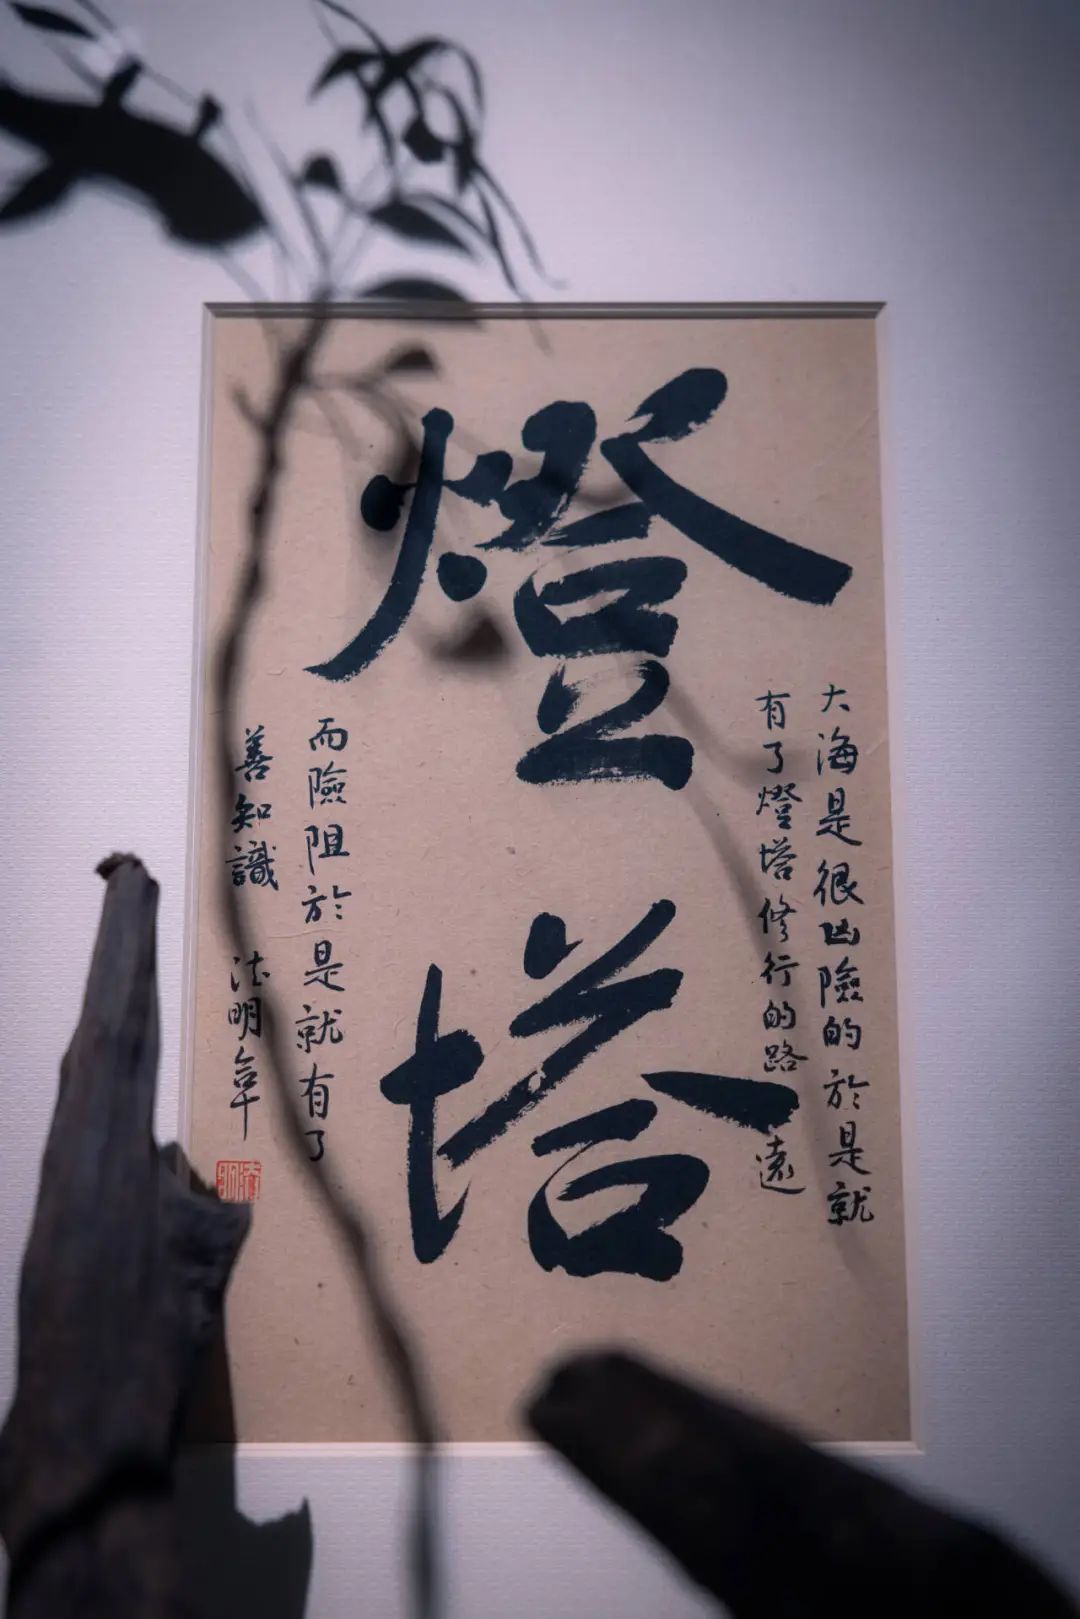 燈塔
大海是很凶險的於是就
有了燈塔修行的路遠
而險阻於是就有了
善知識 法明合十